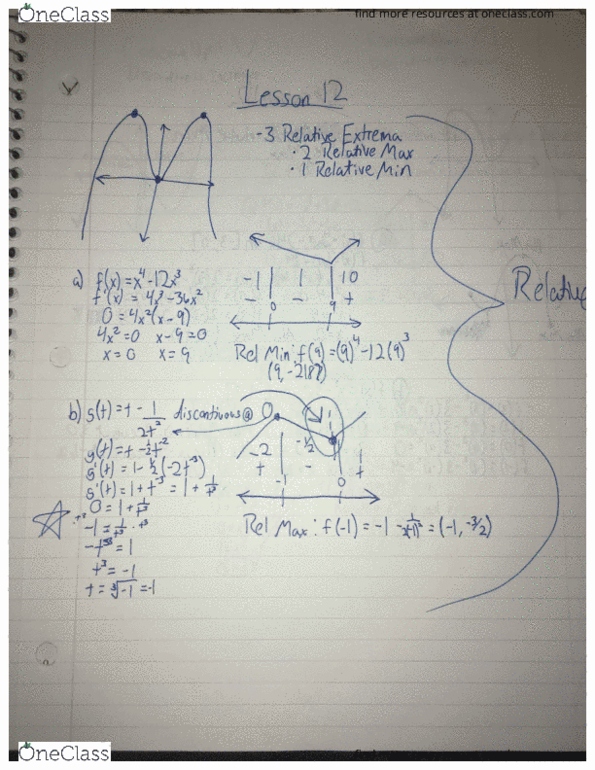 OneClass
find more resources at oneclass.com
Lesson 12
-3 Relative Extrema
• 2 Relative Max
• 1 Relative Min
Relative
a) f(x)=x⁴-12x³
f'(x) = 4x³-36x²
0 = 4x²(x-9)
4x²=0 x-9=0
x=0 x=9
-1 1 10
- - +
0 9
Rel Min: f(9)=(9)⁴-12(9)³
(9,-2187)
b) g(t)=t- 1/2t² discontinuous @ 0
g(t)=t-½t⁻²
g'(t)=1-½(-2t⁻³)
g'(t)=1+t⁻³ = 1+1/t³
0=1+1/t³
-1=1/t³ · t³
=1
t³=-1
t=∛-1=-1
-2 -½ 1
+ - +
-1 0
Rel Max: f(-1)=-1-1/2(-1)²=(-1,-3/2)
OneClass